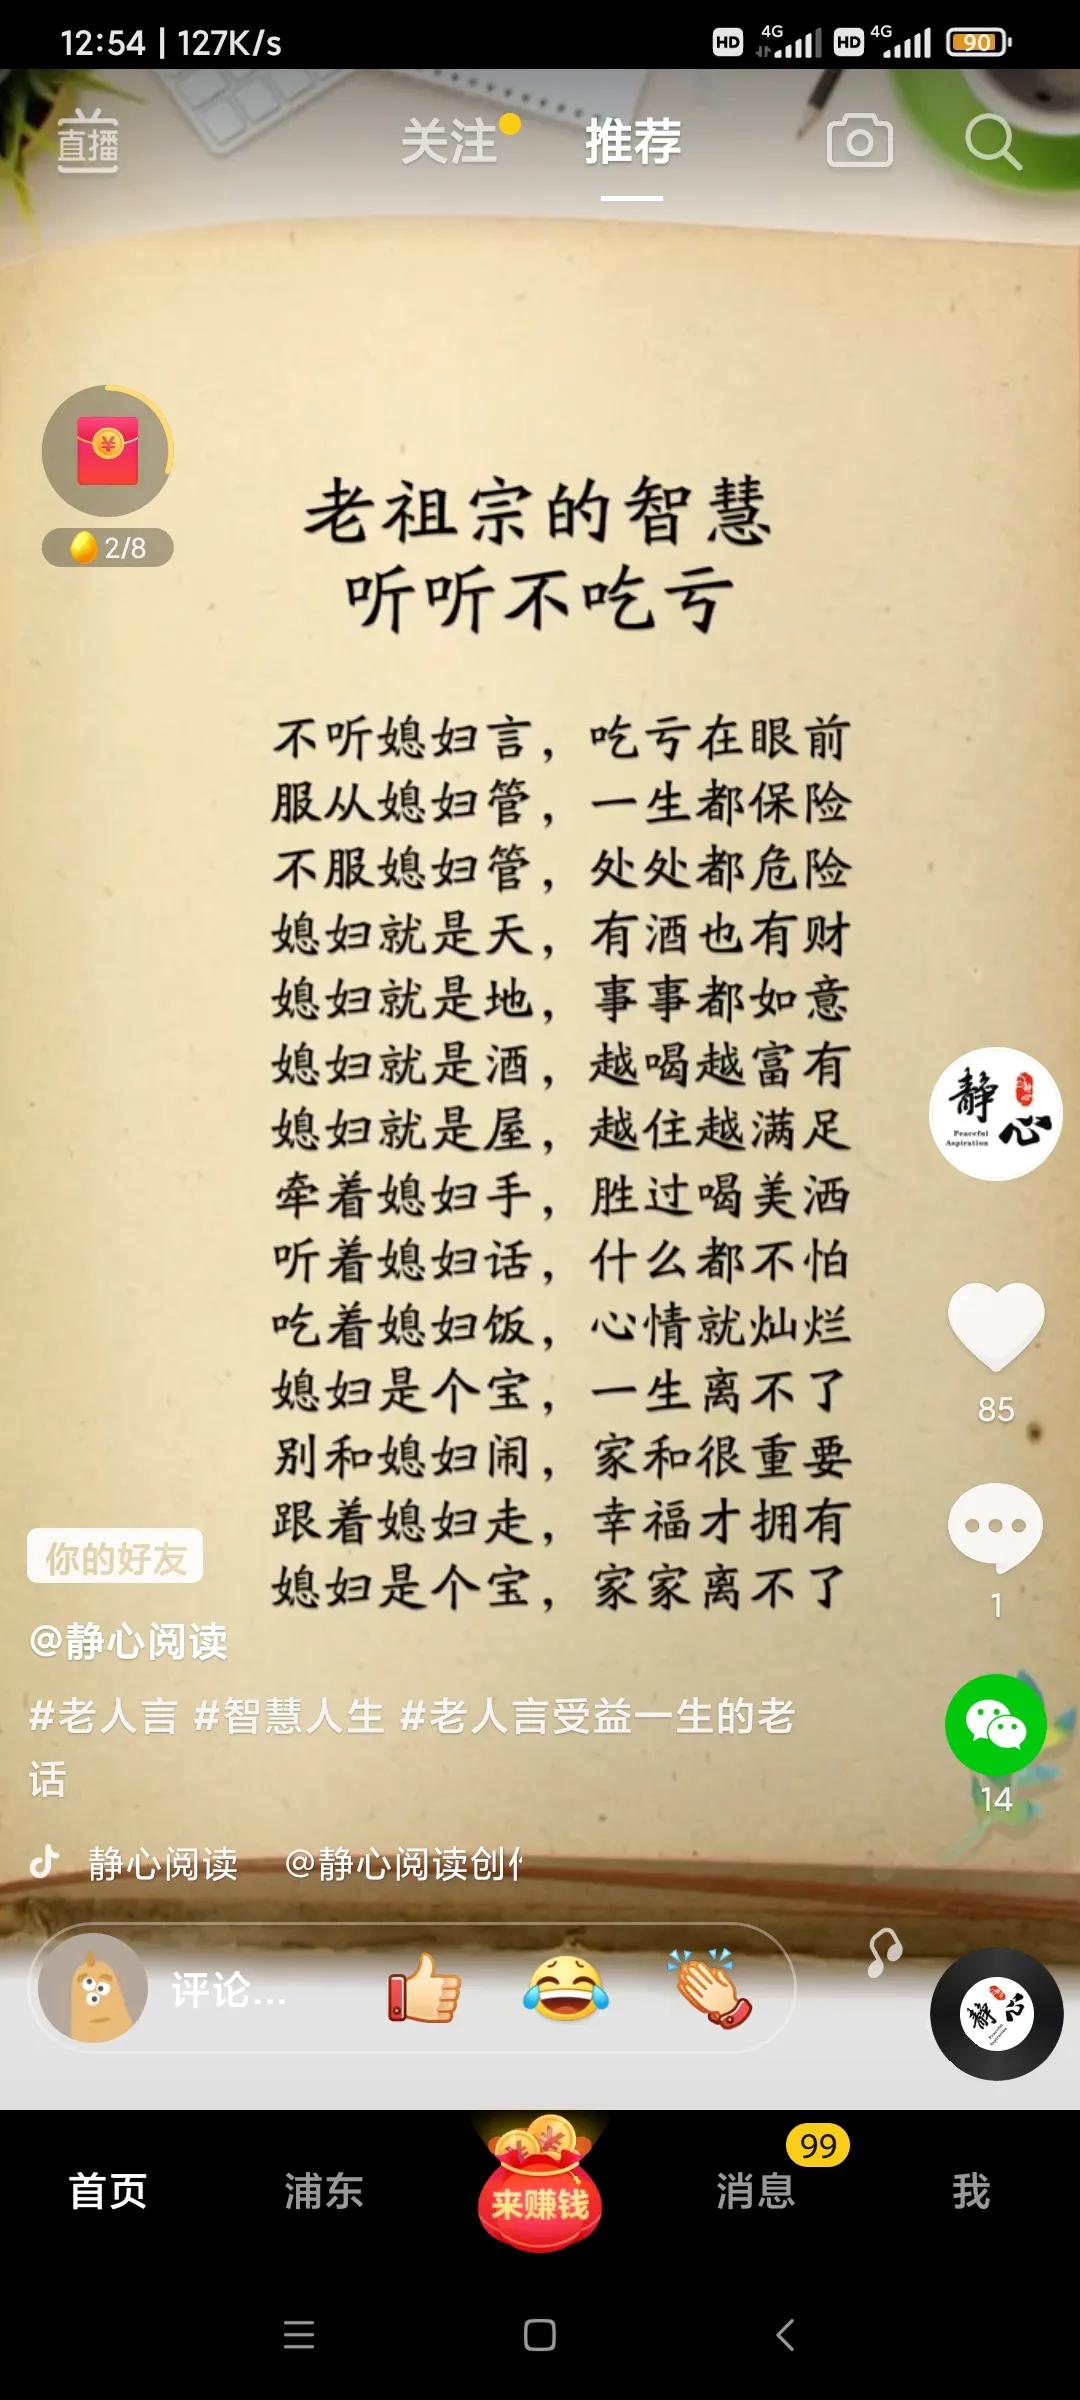 12:54 | 127K/s
HD 4G HD 4G 90
直播 关注 推荐
2/8
老祖宗的智慧
听听不吃亏
不听媳妇言，吃亏在眼前
服从媳妇管，一生都保险
不服媳妇管，处处都危险
媳妇就是天，有酒也有财
媳妇就是地，事事都如意
媳妇就是酒，越喝越富有
媳妇就是屋，越住越满足
牵着媳妇手，胜过喝美洒
听着媳妇话，什么都不怕
吃着媳妇饭，心情就灿烂
媳妇是个宝，一生离不了
别和媳妇闹，家和很重要
跟着媳妇走，幸福才拥有
媳妇是个宝，家家离不了
静心
Peaceful
Aspiration
85
1
14
你的好友
@静心阅读
#老人言 #智慧人生 #老人言受益一生的老
话
静心阅读 @静心阅读创作
评论...
静心
首页 浦东 来赚钱 消息 99 我